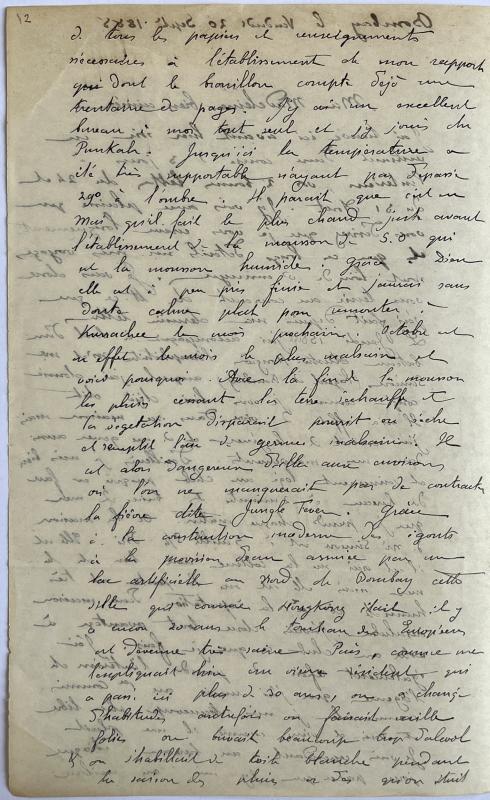 12
de tous les papiers et renseignements
nécessaires à l'établissement de mon rapport
que dont le brouillon compte déjà une
trentaine de pages. J'y ai un excellent
bureau à moi tout seul et j'y jouis du
Punkah. Jusqu'ici la température a
été très supportable n'ayant pas dépassé
29° à l'ombre. Il parait que c'est en
Mai qu'il fait le plus chaud, juste avant
l'établissement de la mousson de S.O qui
est la mousson humide; grâce à Dieu
elle est à peu près finie et j'aurais sans
doute calme plat pour remonter à
Kurrachee le mois prochain. Octobre est
en effet le mois le plus malsain et
voici pourquoi. Avec la fin de la mousson
les pluies cessent, les terres échauffées et
la végétation disparait pourrit ou sèche
et remplit l'air de germes malsains. Il
est alors dangereux d'aller aux environs
où l'on ne manquerait pas de contracter
la fièvre dite Jungle Fever. Grâce
à la construction moderne des égouts
à la provision d'eau amenée par un
lac artificielle au Nord de Bombay cette
ville qui comme Hongkong était il y
a encore 20 ans le tombeau des Européens
est devenue très saine. Puis, comme me
l'expliquait hier un vieux résident qui
a passé ici plus de 30 ans, on a changé
d'habitudes, autrefois on faisait mille
folies on buvait beaucoup trop d'alcool
& on s'habillait de toile blanche pendant
la saison des pluies